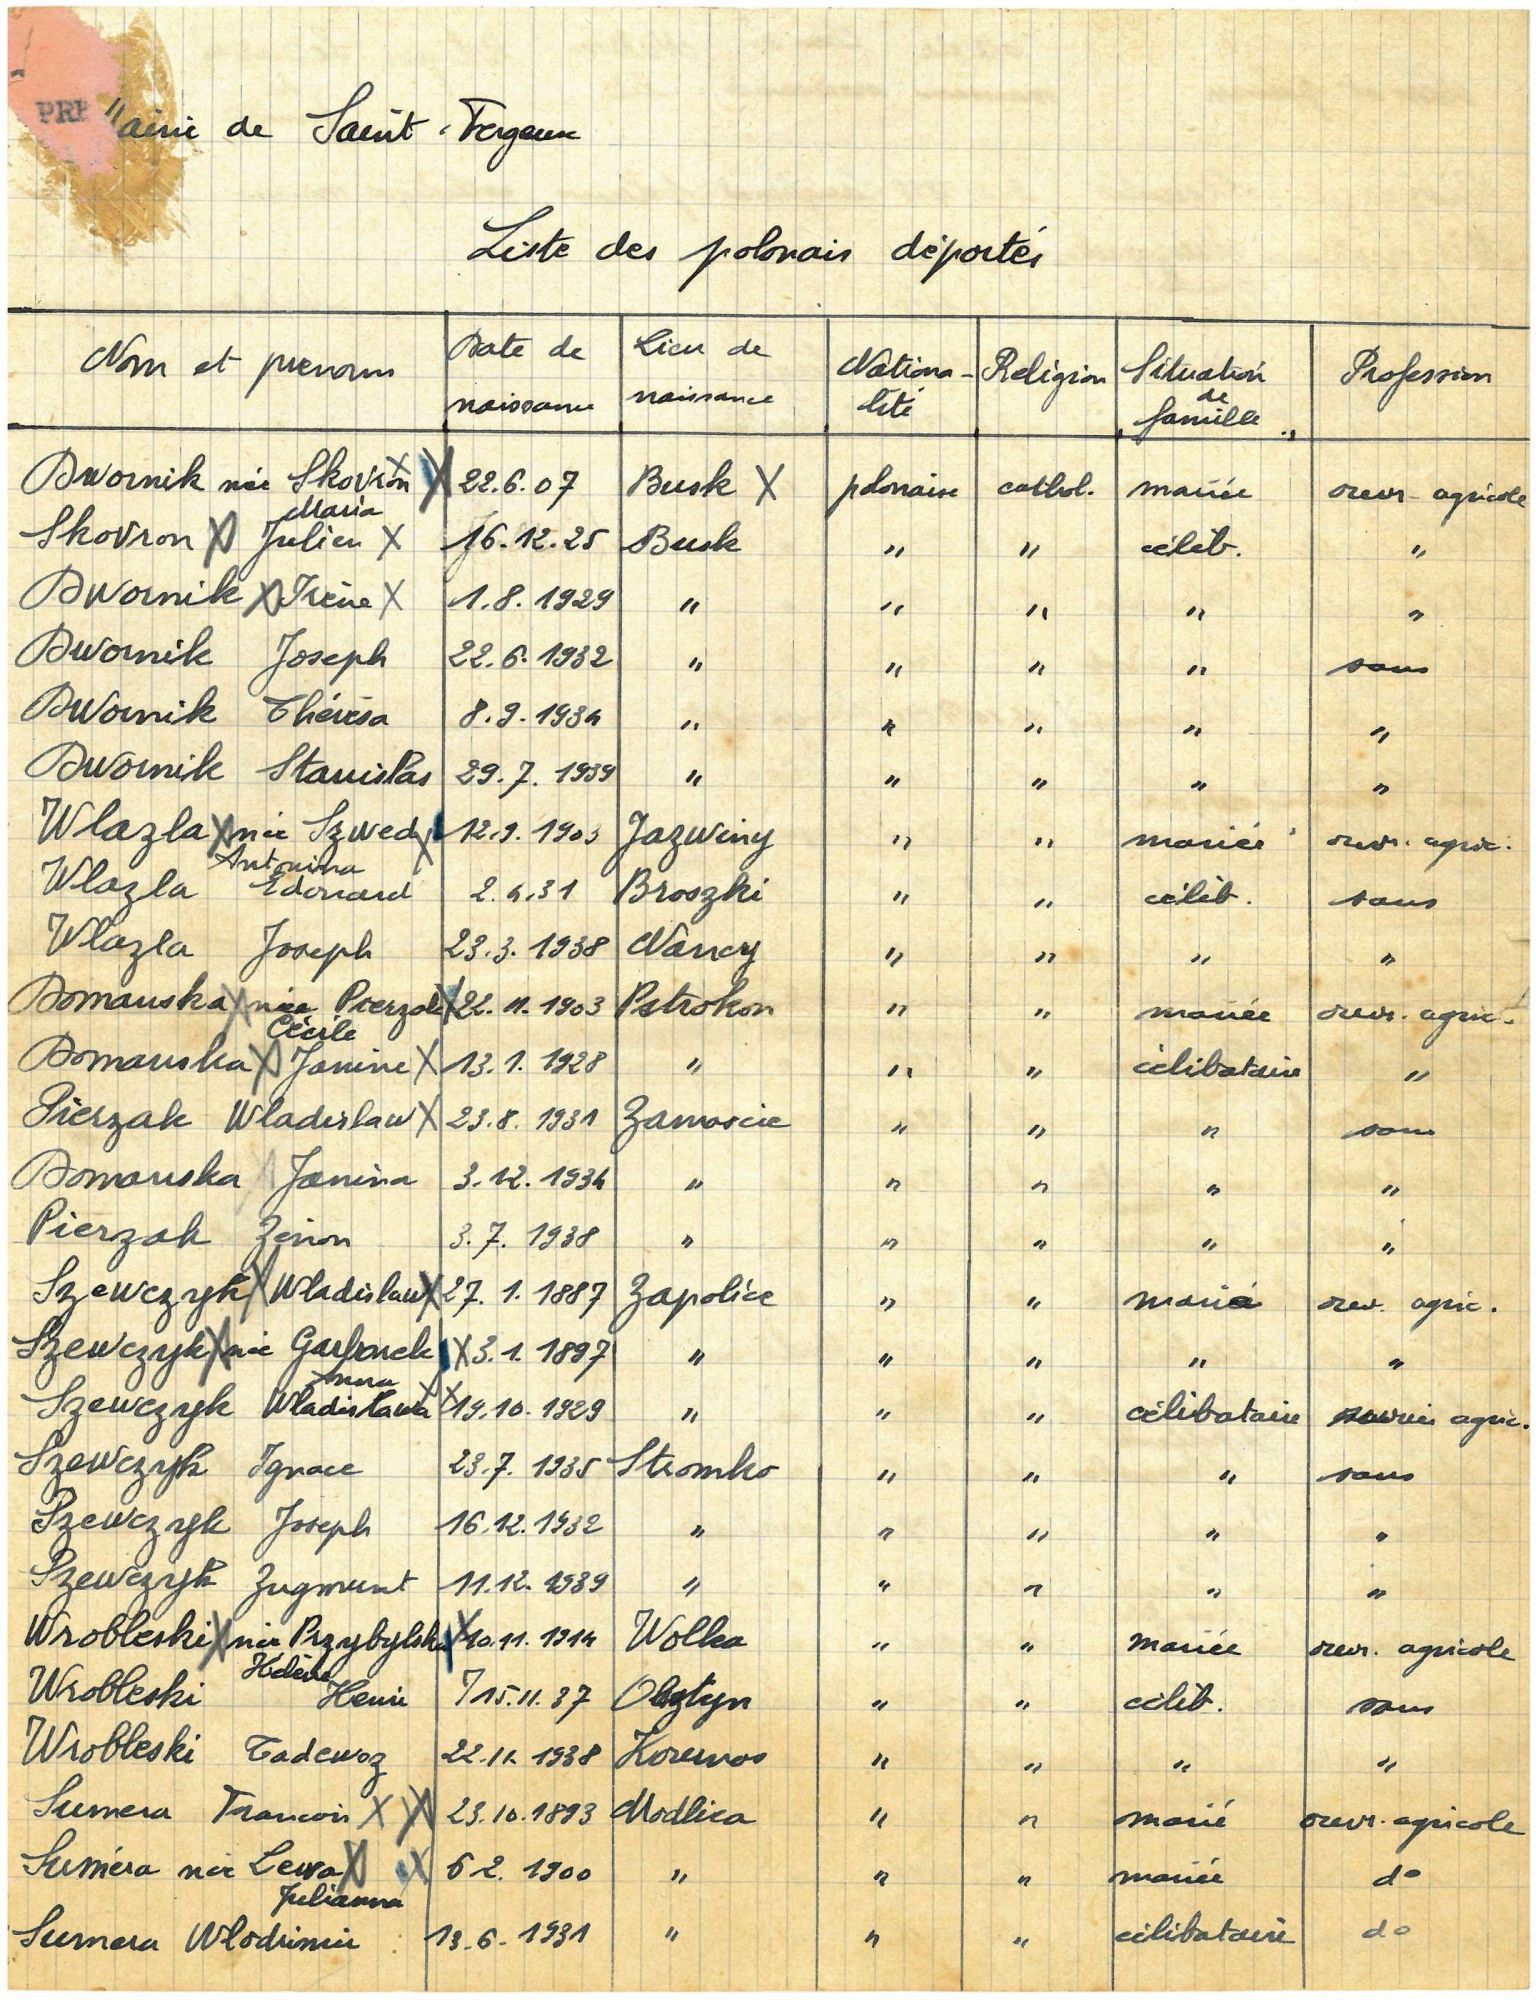 PRE
"airie de Saint-Fergeux
Liste des polonais déportés
Nom et prenoms Date de naissance Lieu de naissance Nationa-lité Religion Situation de famille Profession
Dwornik née Skovron X X 22.6.07 Busk X polonaise cathol. mariée ouvr. agricole
Maria
Skovron X Julien X 16.12.25 Busk " " célib. "
Dwornik X Irène X 1.8.1929 " " " " "
Dwornik Joseph 22.6.1932 " " " " sans
Dwornik Thérèsa 8.9.1934 " " " " "
Dwornik Stanislas 29.7.1939 " " " " "
Wlazla X née Szwed X 12.9.1903 Jazwiny " " mariée ouvr. agric.
Antonina
Wlazla Edouard 2.4.31 Broszki " " célib. sans
Wlazla Joseph 23.3.1938 Nancy " " " "
Domanska X née Pierzak X 22.11.1903 Pstrokon " " mariée ouvr. agric.
Cécile
Domanska X Janine X 13.1.1928 " " " célibataire "
Pierzak Wladislaw X 23.8.1931 Zamoscie " " " sans
Domanska Janina 3.12.1934 " " " " "
Pierzak Zenon 3.7.1938 " " " " "
Szewczyk X Wladislaw X 27.1.1887 Zapolice " " marié ouv. agric.
Szewczyk X née Garbonek X 3.1.1897 " " " " "
Anna
Szewczyk Wladislawa X X 19.10.1929 " " " célibataire ouvrier agric.
Szewczyk Ignace 23.7.1935 Stromko " " " sans
Szewczyk Joseph 16.12.1932 " " " " "
Szewczyk Zugmunt 11.12.1939 " " " " "
Wrobleski X née Przybylska X 10.11.1914 Wolka " " mariée ouvr. agricole
Hélène
Wrobleski Henri 15.11.37 Olsztyn " " célib. sans
Wrobleski Tadewoz 22.11.1938 " " " "
Sumera Francois X X 23.10.1893 Modlica " " marié ouvr. agricole
Suméra née Lewa X X 6 2.1900 " " " mariée do
Julianna
Sumera Wlodimir 13.6.1931 " " " célibataire do